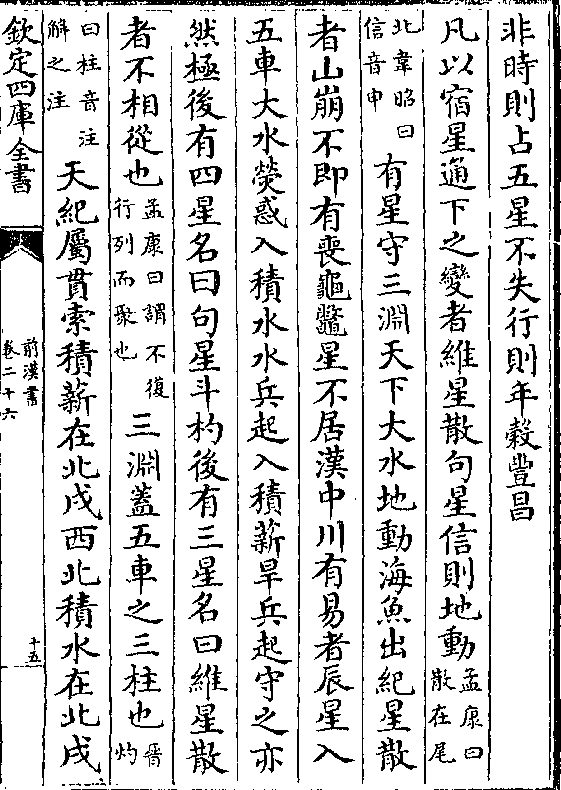 非時則占五星不失行則年穀豐昌
凡以宿星通下之變者維星散句星信則地動孟康曰散在尾
北韋昭曰信音申有星守三淵天下大水地動海魚出紀星散
者山崩不即有喪龜鼈星不居漢中川有易者辰星入
五車大水熒惑入積水水兵起入積薪旱兵起守之亦
然極後有四星名曰句星斗杓後有三星名曰維星散
者不相從也孟康曰謂不復行列而聚也三淵蓋五車之三柱也晉灼
曰柱音注解之注天紀屬貫索積薪在北戍西北積水在北戍
欽定四庫全書
前漢書
卷二十六
十五